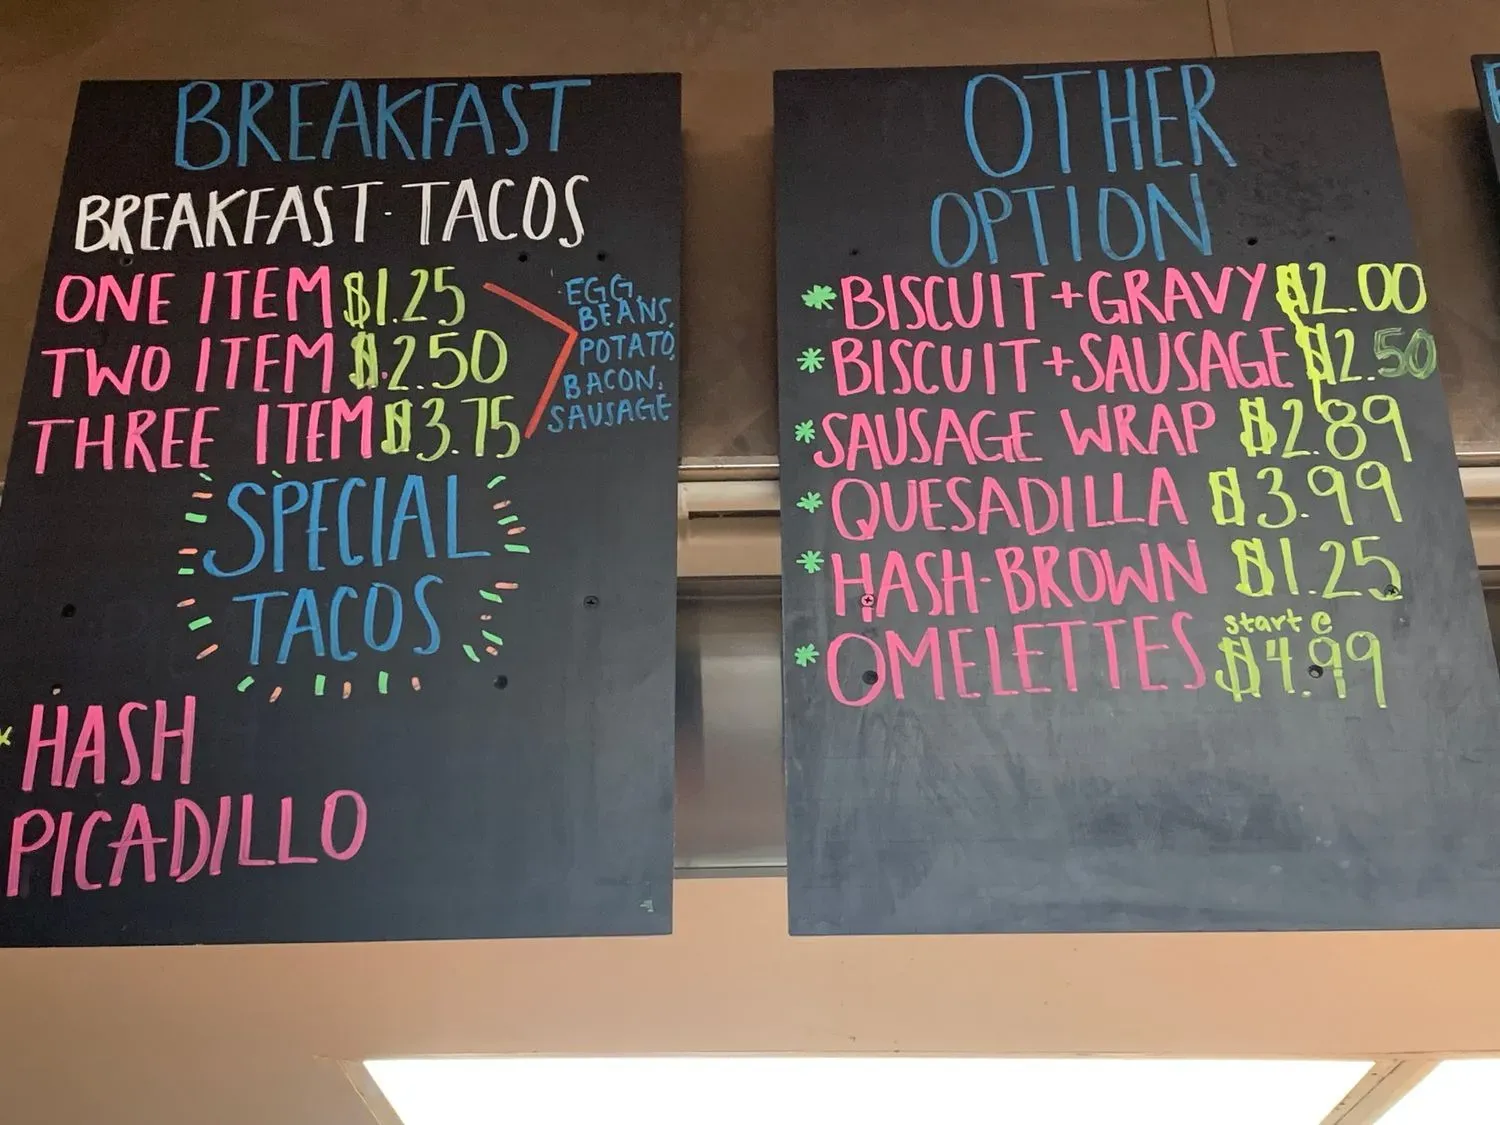 BREAKFAST
BREAKFAST·TACOS
ONE ITEM $1.25
TWO ITEM $2.50
THREE ITEM $3.75
EGG,
BEANS,
POTATO,
BACON,
SAUSAGE
SPECIAL
TACOS
* HASH
PICADILLO
OTHER
OPTION
* BISCUIT+GRAVY $2.00
* BISCUIT+SAUSAGE $2.50
* SAUSAGE WRAP $2.89
* QUESADILLA $3.99
* HASH-BROWN $1.25
start e
* OMELETTES $4.99